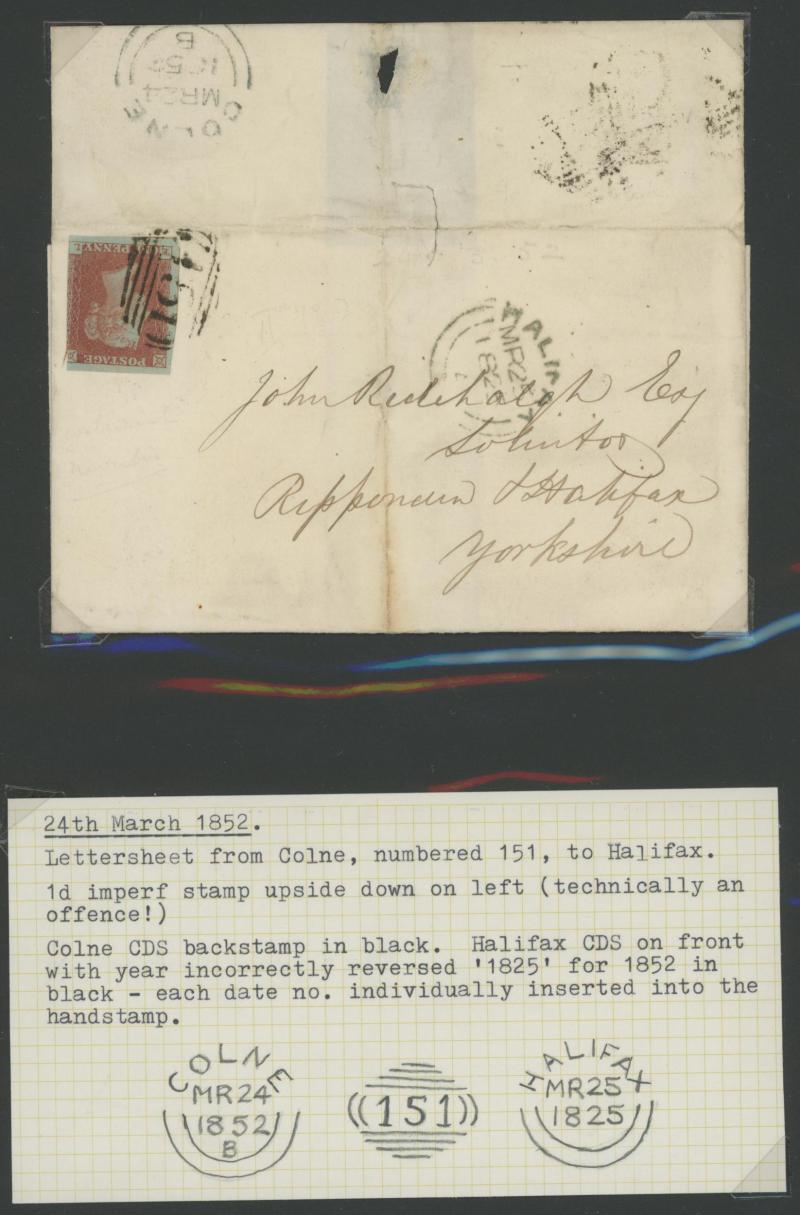 COLNE
MR24
185
B
POSTAGE
PENNY.
151
HALIFAX
MR25
182
John Rudehalgh Esq
Solicitor
Ripponden & Halifax
Yorkshire
24th March 1852.
Lettersheet from Colne, numbered 151, to Halifax.
1d imperf stamp upside down on left (technically an
offence!)
Colne CDS backstamp in black. Halifax CDS on front
with year incorrectly reversed '1825' for 1852 in
black - each date no. individually inserted into the
handstamp.
COLNE
MR24
1852
B
((151))
HALIFAX
MR25
1825